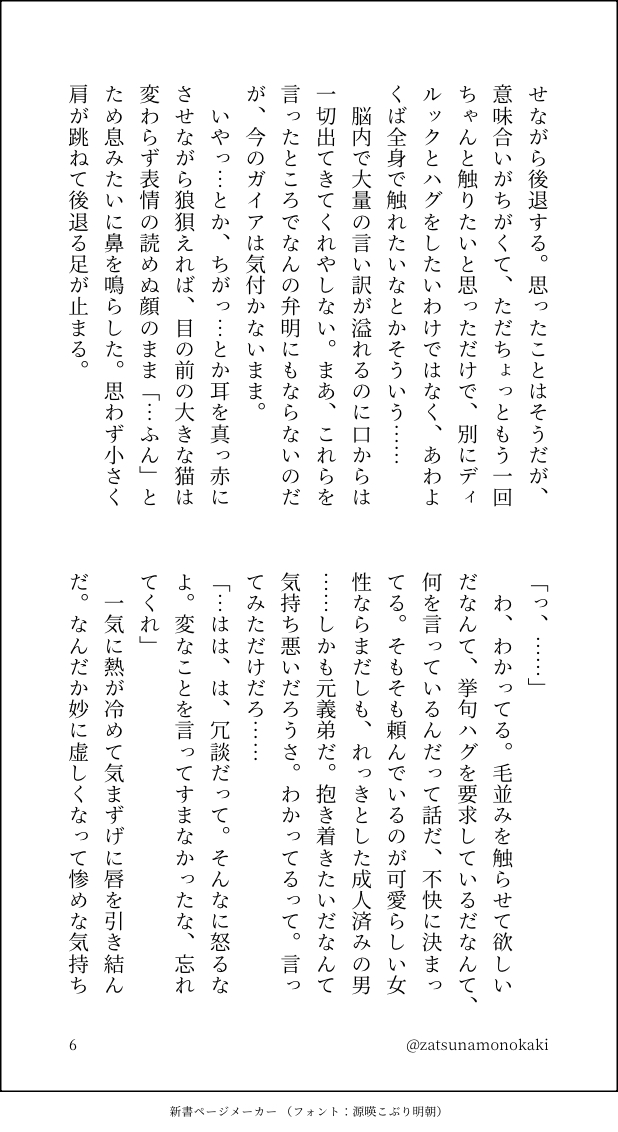 せながら後退する。思ったことはそうだが、
意味合いがちがくて、ただちょっともう一回
ちゃんと触りたいと思っただけで、別にディ
ルックとハグをしたいわけではなく、あわよ
くば全身で触れたいなとかそういう……
　脳内で大量の言い訳が溢れるのに口からは
一切出てきてくれやしない。まあ、これらを
言ったところでなんの弁明にもならないのだ
が、今のガイアは気付かないまま。
　いやっ…とか、ちがっ…とか耳を真っ赤に
させながら狼狽えれば、目の前の大きな猫は
変わらず表情の読めぬ顔のまま「…ふん」と
ため息みたいに鼻を鳴らした。思わず小さく
肩が跳ねて後退る足が止まる。
「っ、……」
　わ、わかってる。毛並みを触らせて欲しい
だなんて、挙句ハグを要求しているだなんて、
何を言っているんだって話だ、不快に決まっ
てる。そもそも頼んでいるのが可愛らしい女
性ならまだしも、れっきとした成人済みの男
……しかも元義弟だ。抱き着きたいだなんて
気持ち悪いだろうさ。わかってるって。言っ
てみただけだろ……
「…はは、は、冗談だって。そんなに怒るな
よ。変なことを言ってすまなかったな、忘れ
てくれ」
　一気に熱が冷めて気まずげに唇を引き結ん
だ。なんだか妙に虚しくなって惨めな気持ち
6
@zatsunamonokaki
新書ページメーカー（フォント：源暎こぶり明朝）